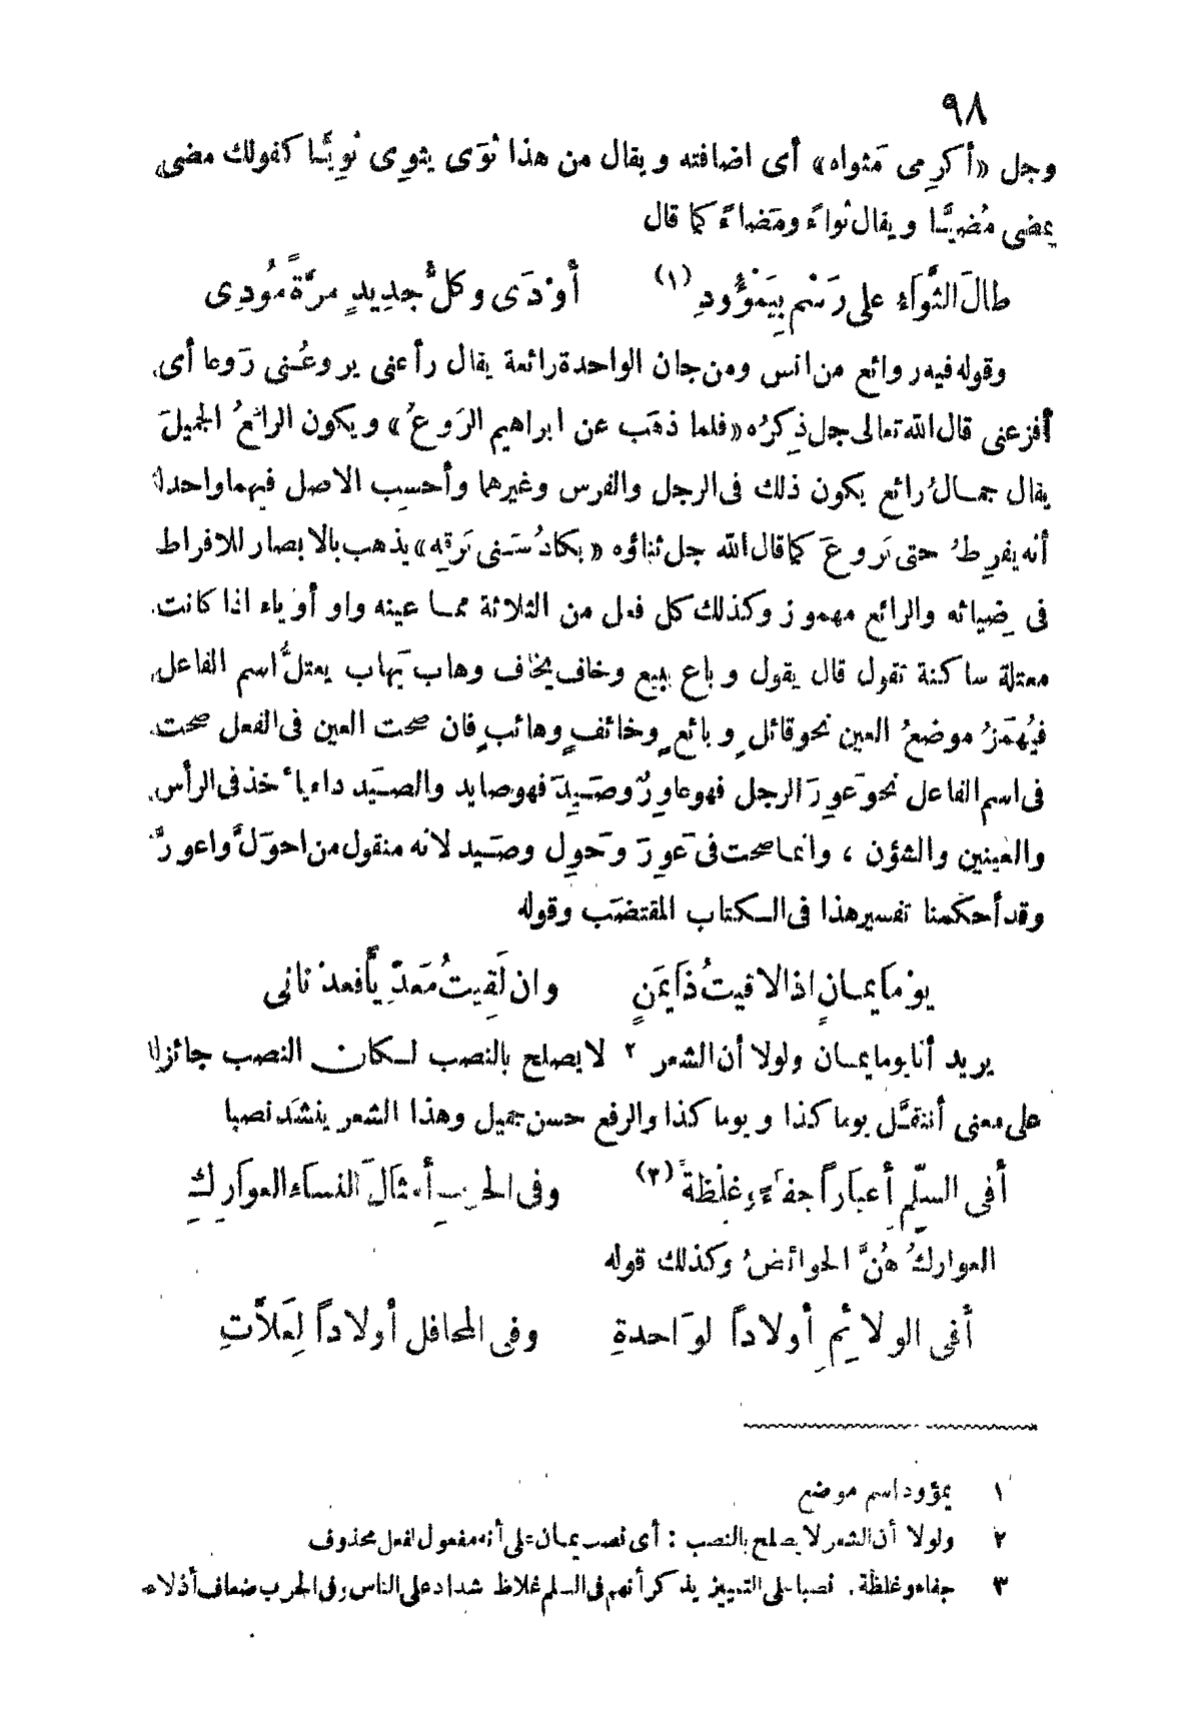 ٩٨
وجل «أكرِمى مَثواه» أى اضافته ويقال من هذا ثوَى يثوِى ثوِيًّا كقولك مضى
يمضى مُضيًّا ويقال ثواءً ومَضاءً كما قال
طالَ الثَّوَاءُ على رَسْمٍ بِيَمْؤُودِ (١) أوْدَى وكلُّ جدِيدٍ مرَّةً مُودِى
وقوله فيه روائع من انس ومن جان الواحدة رائعة يقال رأعنى يروعُنى رَوعا أى
أفزعنى قال الله تعالى جل ذِكرُه «فلما ذهَب عن ابراهيم الرَوعُ» ويكون الرائعُ الجميلَ
يقال جمالٌ رائع يكون ذلك فى الرجل والفرس وغيرهما وأحسِب الاصل فيهما واحدا
أنه يفرِطُ حتى يَروعَ كما قال الله جل ثناؤه «يكادُ سَنى بَرقِه» يذهب بالابصار للافراط
فى ضِيائه والرائع مهموز وكذلك كل فعل من الثلاثة مما عينه واو أو ياء اذا كانت
معتلة ساكنة تقول قال يقول وباع يبيع وخاف يخاف وهاب يَهاب يعتلُّ اسم الفاعل
فيُهمَزُ موضعُ العين نحو قائلٍ وبائعٍ وخائفٍ وهائبٍ فان صحت العين فى الفعل صحت
فى اسم الفاعل نحو عَوِرَ الرجل فهو عاوِرٌ وصَيِدَ فهو صايد والصَيَد داء يأخذ فى الرأس
والعينين والشؤن ، وانما صحت فى عَوِرَ وحَوِل وصَيد لانه منقول من احوَلَّ واعورَّ
وقد أحكمنا تفسير هذا فى الكتاب المقتضَب وقوله
يوْما يمانٍ اذا لاقيتُ ذا يَمَنٍ وان لَقِيتُ مَعَدّيًّا فعدْنانى
يريد أنا يوما يمان ولولا أن الشعر ٢ لا يصلح بالنصب لكان النصب جائزا
على معنى أتنقَّل يوما كذا ويوما كذا والرفع حسن جميل وهذا الشعر ينشَد نصبا
أفى السلِّمِ أعياراً جفاءً وغلْظةً (٣) وفى الحربِ أمثالَ النساء العوارِكِ
العوارِكُ هُنَّ الحوائضُ وكذلك قوله
أفى الولائمِ أولاداً لواحدةٍ وفى المحافل أولاداً لِعَلاَّتِ
١ يمؤود اسم موضع
٢ ولولا أن الشعر لا يصلح بالنصب : أى نصب يمان على أنه مفعول لفعل محذوف
٣ جفاء وغلظة . نصبا على التمييز يذكر أنهم فى السلم غلاظ شداد على الناس وفى الحرب ضعاف أذلاء